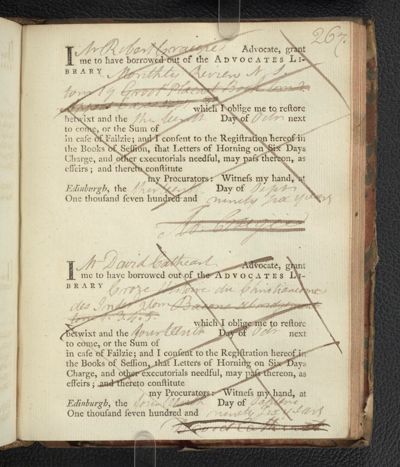 267.
I Mr Robert Craigie Advocate, grant
me to have borrowed out of the ADVOCATES LI-
BRARY Monthly Review N. S.
tom 19
which I oblige me to restore
betwixt and the Day of Octr next
to come, or the Sum of
in case of Failzie; and I consent to the Registration hereof in
the Books of Session, that Letters of Horning on Six Days
Charge, and other executorials needful, may pass thereon, as
effeirs; and thereto constitute
my Procurators: Witness my hand, at
Edinburgh, the Day of Septr
One thousand seven hundred and ninety six years
Ro. Craigie
I Mr David Cathcart Advocate, grant
me to have borrowed out of the ADVOCATES LI-
BRARY Croze Histoire du Christianisme
des Indes
which I oblige me to restore
betwixt and the fourteenth Day of Octr next
to come, or the Sum of
in case of Failzie; and I consent to the Registration hereof in
the Books of Session, that Letters of Horning on Six Days
Charge, and other executorials needful, may pass thereon, as
effeirs; and thereto constitute
my Procurators: Witness my hand, at
Edinburgh, the fourteenth Day of
One thousand seven hundred and ninety six years
David Cathcart